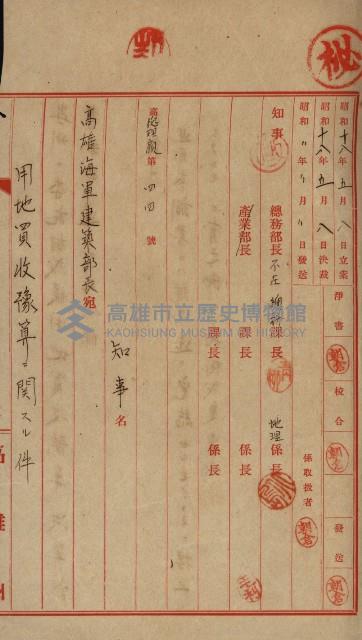 秘
昭和十八年五月八日立案
昭和十八年五月八日決裁
昭和 年 月 日發送
淨書
校合
發送
朝倉
係取扱者
朝倉
知事
總務部長 不在
課長
地理係長
產業部長
課長
係長
課長
係長
高 第一四四號
知事名
高雄海軍建築部長宛
用地買收豫算ニ関スル件
高雄市立歷史博物館
KAOHSIUNG MUSEUM OF HISTORY